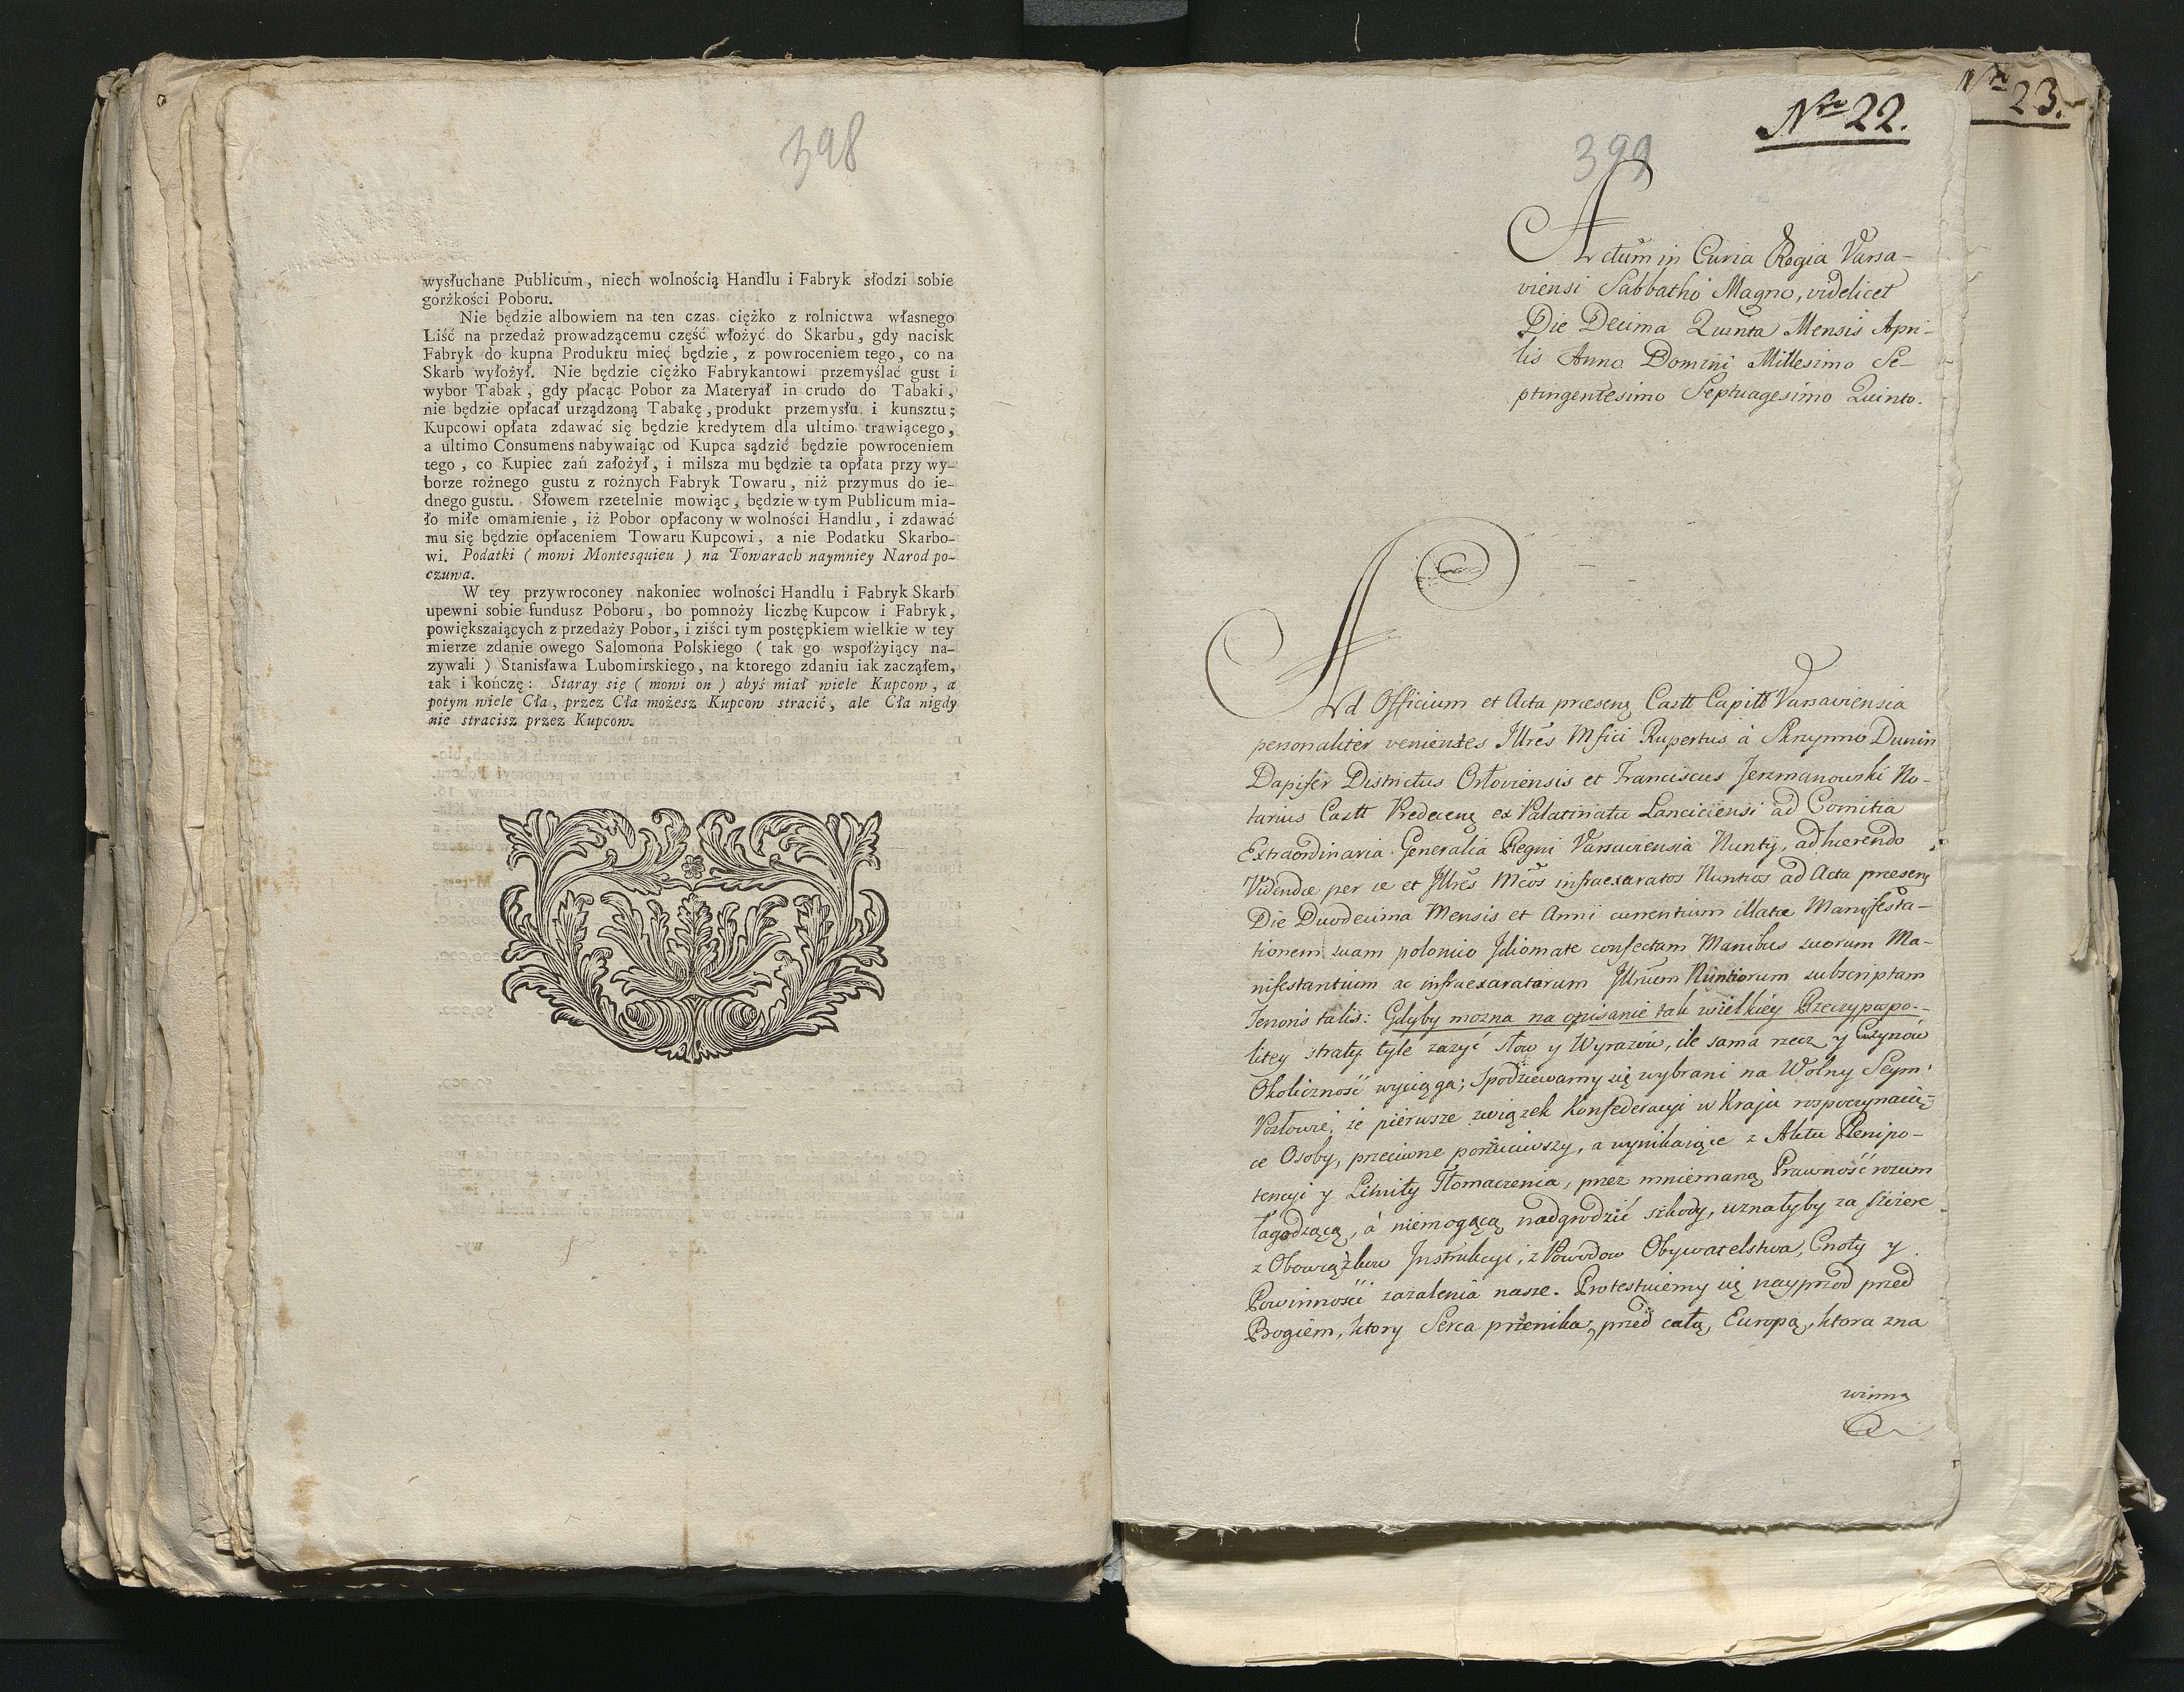 398
wysłuchane Publicum, niech wolnością Handlu i Fabryk słodzi sobie
gorżkości Poboru.
Nie będzie albowiem na ten czas ciężko z rolnictwa własnego
Liść na przedaż prowadzącemu część włożyć do Skarbu, gdy nacisk
Fabryk do kupna Produktu mieć będzie, z powroceniem tego, co na
Skarb wyłożył. Nie będzie ciężko Fabrykantowi przemyślać gust i
wybor Tabak, gdy płacąc Pobor za Materyał in crudo do Tabaki,
nie będzie opłacał urządzoną Tabakę, produkt przemysłu i kunsztu;
Kupcowi opłata zdawać się będzie kredytem dla ultimo trawiącego,
a ultimo Consumens nabywaiąc od Kupca sądzić będzie powroceniem
tego, co Kupiec zań założył, i milsza mu będzie ta opłata przy wy-
borze rożnego gustu z rożnych Fabryk Towaru, niż przymus do ie-
dnego gustu. Słowem rzetelnie mowiąc, będzie w tym Publicum mia-
ło miłe omamienie, iż Pobor opłacony w wolności Handlu, i zdawać
mu się będzie opłaceniem Towaru Kupcowi, a nie Podatku Skarbo-
wi. Podatki ( mowi Montesquieu ) na Towarach naymniey Narod po-
czuwa.
W tey przywroconey nakoniec wolności Handlu i Fabryk Skarb
upewni sobie fundusz Poboru, bo pomnoży liczbę Kupcow i Fabryk,
powiększaiących z przedaży Pobor, i ziści tym postępkiem wielkie w tey
mierze zdanie owego Salomona Polskiego ( tak go wspołżyiący na-
zywali ) Stanisława Lubomirskiego, na ktorego zdaniu iak zacząłem,
tak i kończę: Staray się ( mowi on ) abyś miał wiele Kupcow, a
potym wiele Cła, przez Cła możesz Kupcow stracić, ale Cła nigdy
nie stracisz przez Kupcow.
Nro 22.
Nro 23.
399
Actum in Curia Regia Varsa-
viensi Sabbatho Magno, videlicet
Die Decima Quinta Mensis Apri-
lis Anno Domini Millesimo Se-
ptingentesimo Septuagesimo Quinto.
Ad Officium et Acta præsenz Castt Capitt Varsaviensia
personaliter venientes Illres Mfici Rupertus à Skrzynno Dunin
Dapifer Districtus Orłoviensis et Franciscus Jerzmanowski No-
tarius Castt Predecenz ex Palatinatu Lanciciensi ad Comitia
Extraordinaria Generalia Regni Varsaviensia Nuntij, adhærendo
per se et Illres Mcos infraexaratos Nuntios ad Acta præsenz
Die Duodecima Mensis et Anni currentium illatæ Manifesta-
tionem suam polonico Idiomate confectam Manibus suorum Ma-
nifestantium ac infraexaratorum Illrium Nuntiorum subscriptam
Tenoris talis: Gdyby mozna na opisanie tak wielkiéy Rzeczypospo-
litey straty tyle zazyć słow y Wyrazów, ile sama rzecz y Czynów
Okoliczność wyciąga; Spodziewamy się wybrani na Wolny Seym
Posłowie, że pierwsze związek Konfederacyi w Kraju rozpoczynaią-
ce Osoby, przeciwne porzuciwszy, a wynikaiące z Aktu Plenipo-
tencyi y Limity Tłomaczenia, przez mniemaną Prawność rozum
łagodzącą, à niemogącą nadgrodzić szkody, uznałyby za szczere
z Obowiązkow Instrukcyi, z Powodow Obywatelstwa, Cnoty y
Powinności zazalenia nasze. Protestuiemy się nayprzod przed
Bogiem, ktory Serca przenika, przed całą Europą, ktora zna
winną